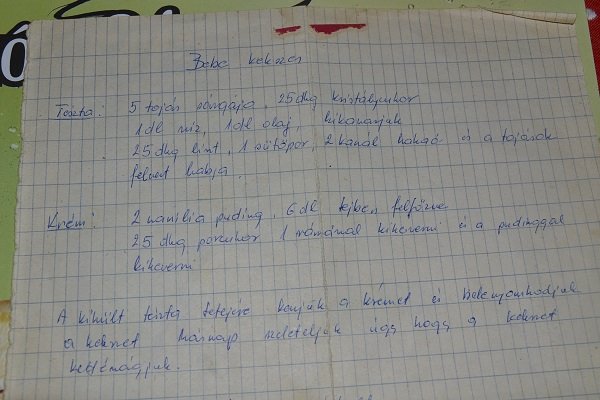 Bebe kekszes
Teszta: 5 tojás sárgája, 25 dkg kristálycukor
1 dl víz, 1 dl olaj, kikavarjuk
25 dkg liszt, 1 sütőpor, 2 kanál kakaó és a tojások
felvert habja.
Krém: 2 vanília puding, 6 dl tejben felfőzve
25 dkg porcukor 1 rámával kikeverni és a pudinggal
kikeverni
A kihült tészta tetejére kenjük a krémet és belenyomkodjuk
a kekszet másnap szeleteljük úgy hogy a kekszet
kettévágjuk.